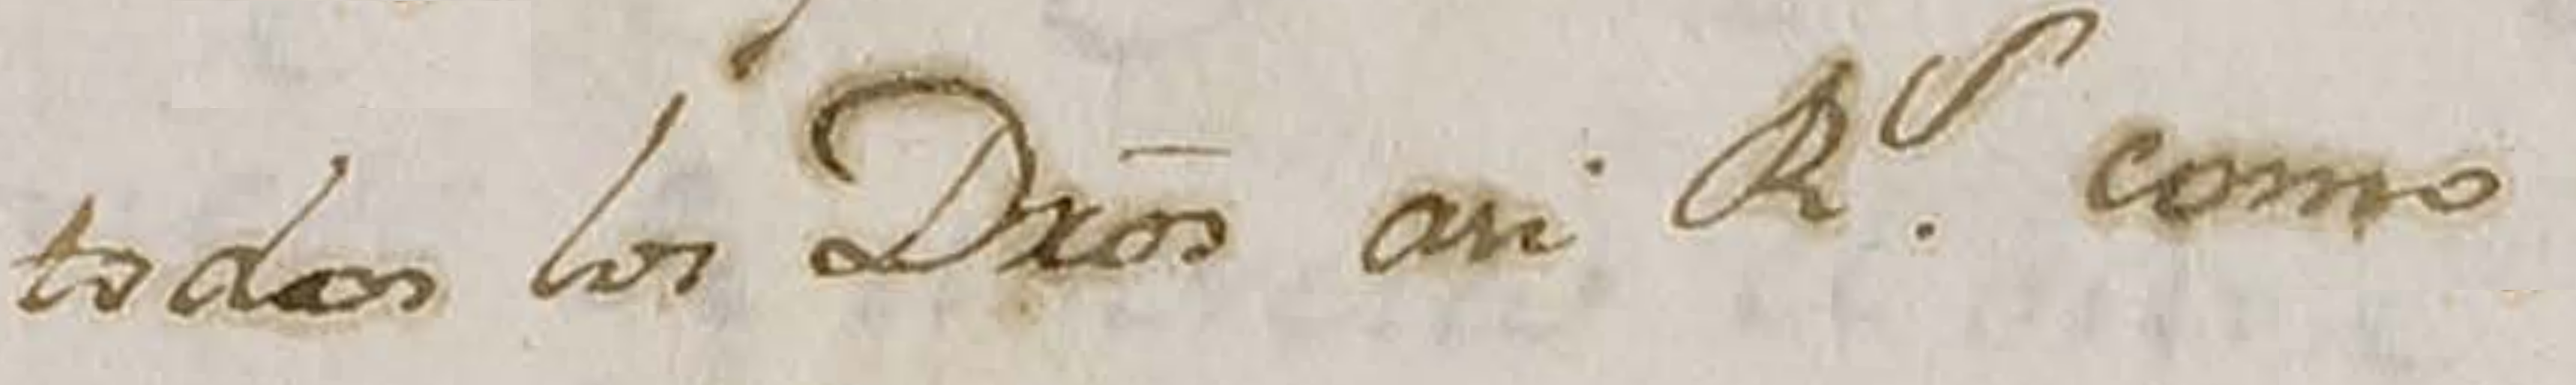 todos los Dr̃os asi R.^s como